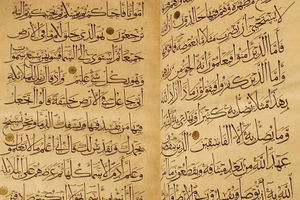 لا يستحيي ان يضرب مثلا ما بعوضة فما فوقها
فاما الذين امنوا فيعلمون انه الحق من
ربهم واما الذين كفروا فيقولون ماذا
به كثيرا وما يضل به الا الفاسقين
عهد الله من بعد ميثاقه ويقطعون ما
امر الله به ان يوصل
امواتا فاحياكم ثم يميتكم ثم يحييكم ثم اليه
ترجعون هو الذي خلق لكم ما في الارض
جميعا ثم استوى الى السماء فسواهن سبع سموات
وهو بكل شيء عليم واذ قال ربك للملائكة
اني جاعل في الارض خليفة قالوا اتجعل فيها
من يفسد فيها ويسفك الدماء ونحن نسبح
بحمدك ونقدس لك قال اني اعلم ما لا تعلمون
وعلم ادم الاسماء كلها ثم عرضهم على الملائكة